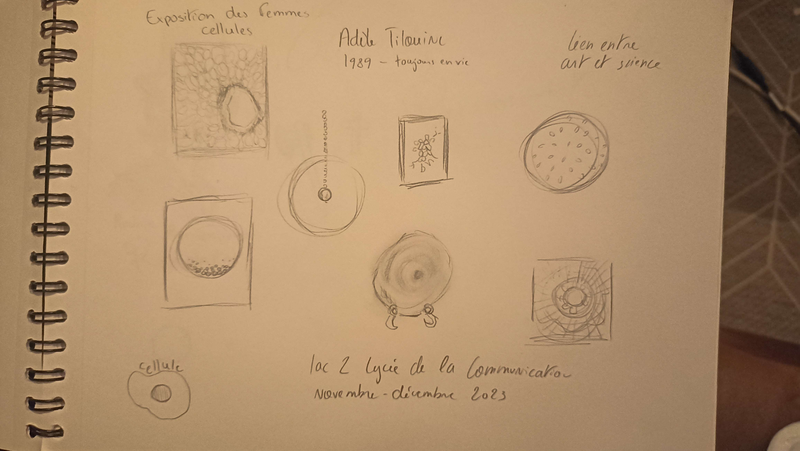 Exposition des Femmes
cellules
Adèle Tilouine
1989 - toujours en vie
lien entre
art et science
cellule
loc 2 Lycée de la Communication
Novembre - décembre 2023